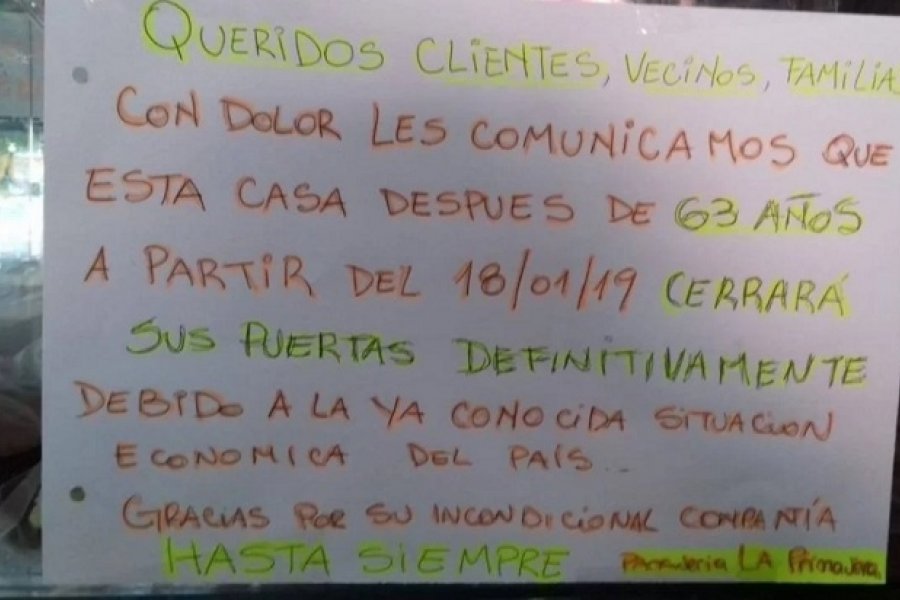 QUERIDOS CLIENTES, VECINOS, FAMILIA
CON DOLOR LES COMUNICAMOS QUE
ESTA CASA DESPUES DE 63 AÑOS
A PARTIR DEL 18/01/19 CERRARÁ
SUS PUERTAS DEFINITIVAMENTE
DEBIDO A LA YA CONOCIDA SITUACION
ECONOMICA DEL PAÍS...
GRACIAS POR SU INCONDICIONAL COMPAÑÍA
HASTA SIEMPRE Panaderia LA Primavera